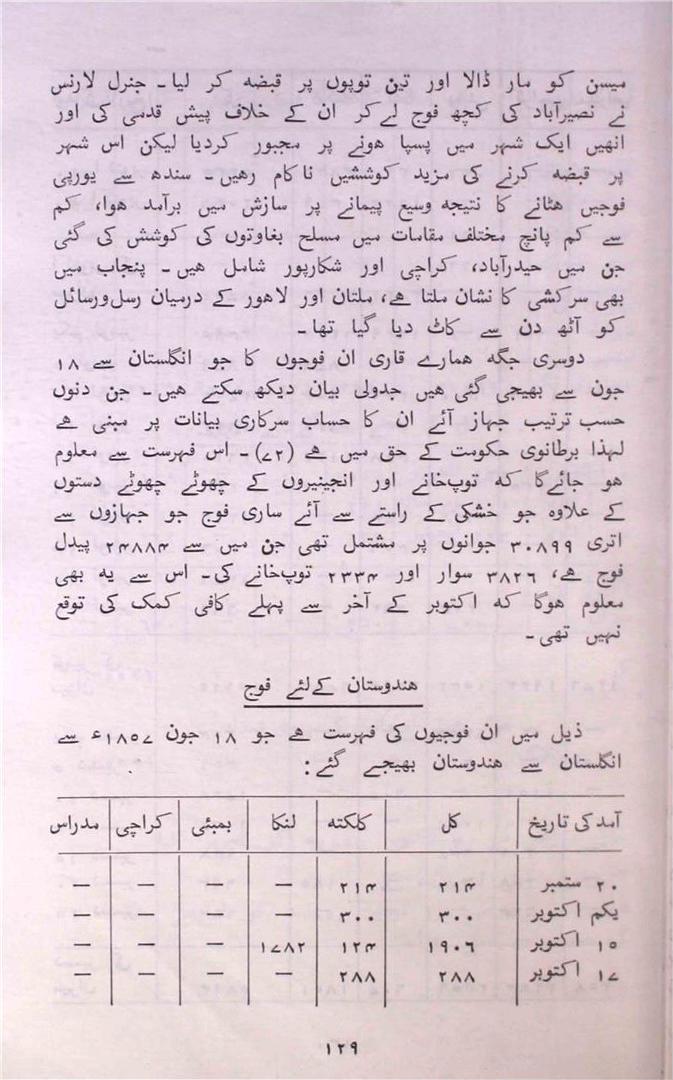 میسن کو مار ڈالا اور تین توپوں پر قبضہ کر لیا۔ جنرل لارنس
نے نصیرآباد کی کچھ فوج لے کر ان کے خلاف پیش قدمی کی اور
انھیں ایک شہر میں پسپا ہونے پر مجبور کردیا لیکن اس شہر
پر قبضہ کرنے کی مزید کوششیں ناکام رہیں۔ سندھ سے یورپی
فوجیں ہٹانے کا نتیجہ وسیع پیمانے پر سازش میں برآمد ہوا، کم
سے کم پانچ مختلف مقامات میں مسلح بغاوتوں کی کوشش کی گئی
جن میں حیدرآباد، کراچی اور شکارپور شامل ہیں۔ پنجاب میں
بھی سرکشی کا نشان ملتا ہے، ملتان اور لاہور کے درمیان رسل و رسائل
کو آٹھ دن سے کاٹ دیا گیا تھا۔
دوسری جگہ ہمارے قاری ان فوجوں کا جو انگلستان سے ۱۸
جون سے بھیجی گئی ہیں جدولی بیان دیکھ سکتے ہیں۔ جن دنوں
حسب ترتیب جہاز آئے ان کا حساب سرکاری بیانات پر مبنی ہے
لہذا برطانوی حکومت کے حق میں ہے (۷۲)۔ اس فہرست سے معلوم
ہو جائے گا کہ توپ خانے اور انجینیروں کے چھوٹے چھوٹے دستوں
کے علاوہ جو خشکی کے راستے سے آئے ساری فوج جو جہازوں سے
اتری ۳۰۸۹۹ جوانوں پر مشتمل تھی جن میں سے ۲۴۸۸۴ پیدل
فوج ہے، ۳۸۲۶ سوار اور ۲۳۳۴ توپ خانے کی۔ اس سے یہ بھی
معلوم ہوگا کہ اکتوبر کے آخر سے پہلے کافی کمک کی توقع
نہیں تھی۔
ہندوستان کے لئے فوج
ذیل میں ان فوجیوں کی فہرست ہے جو ۱۸ جون ۱۸۵۷ء سے
انگلستان سے ہندوستان بھیجے گئے:
آمد کی تاریخ کل کلکتہ لنکا بمبئی کراچی مدراس
۲۰ ستمبر ۲۱۴ ۲۱۴ — — — —
یکم اکتوبر ۳۰۰ ۳۰۰ — — — —
۱۵ اکتوبر ۱۹۰۶ ۱۲۴ ۱۷۸۲ — — —
۱۷ اکتوبر ۲۸۸ ۲۸۸ — — — —
۱۲۹